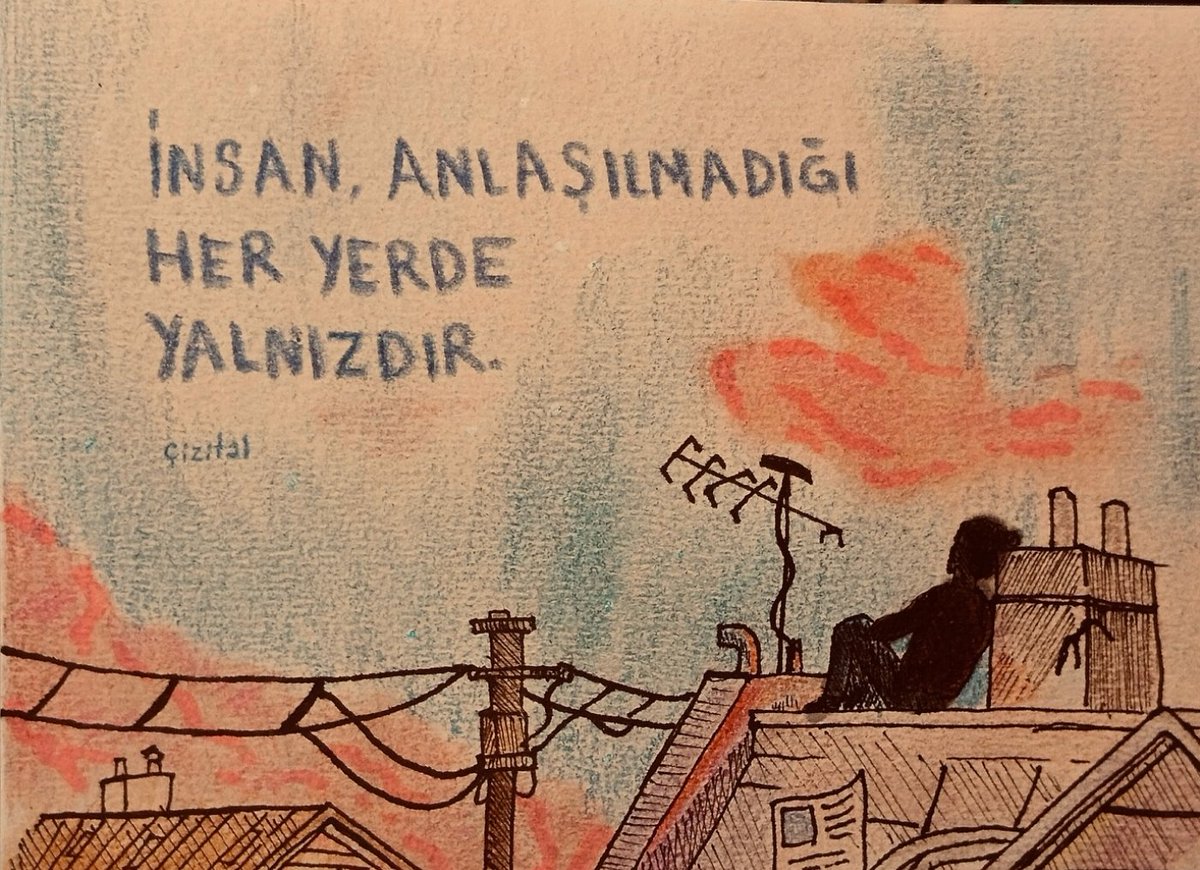 İNSAN, ANLAŞILMADIĞI
HER YERDE
YALNIZDIR.
çizital